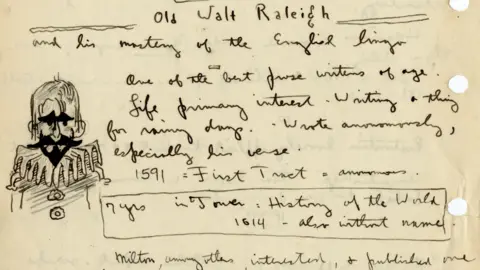 Old Walt Raleigh
and his mastery of the English lingo
One of the best prose writers of age.
Life primary interest - Writing a thing
for rainy day. - Wrote anonomously,
especially his verse.
1591 = First Tract = anonomous.
7 yrs in Tower : History of the World
1614 - also without name.
Milton, among others interested, & published one